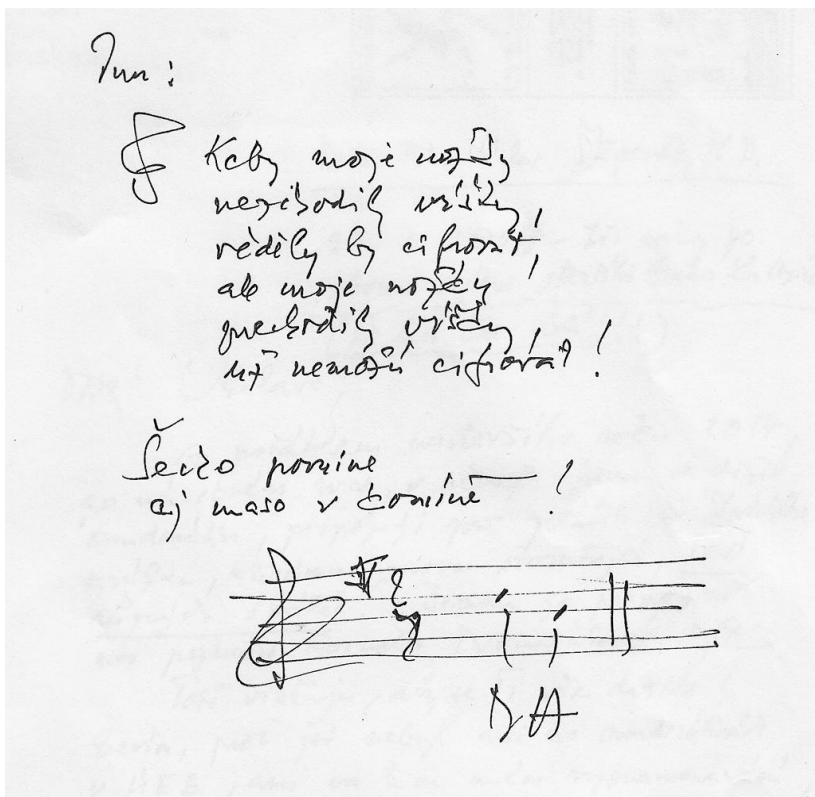 Keby moje nožky
nechodily vršky,
věděly by cifrovat,
ale moje nožky
prechodily vršky,
už nemožú cifrovat!
Šecko pomine
aj maso v komíně!
D A